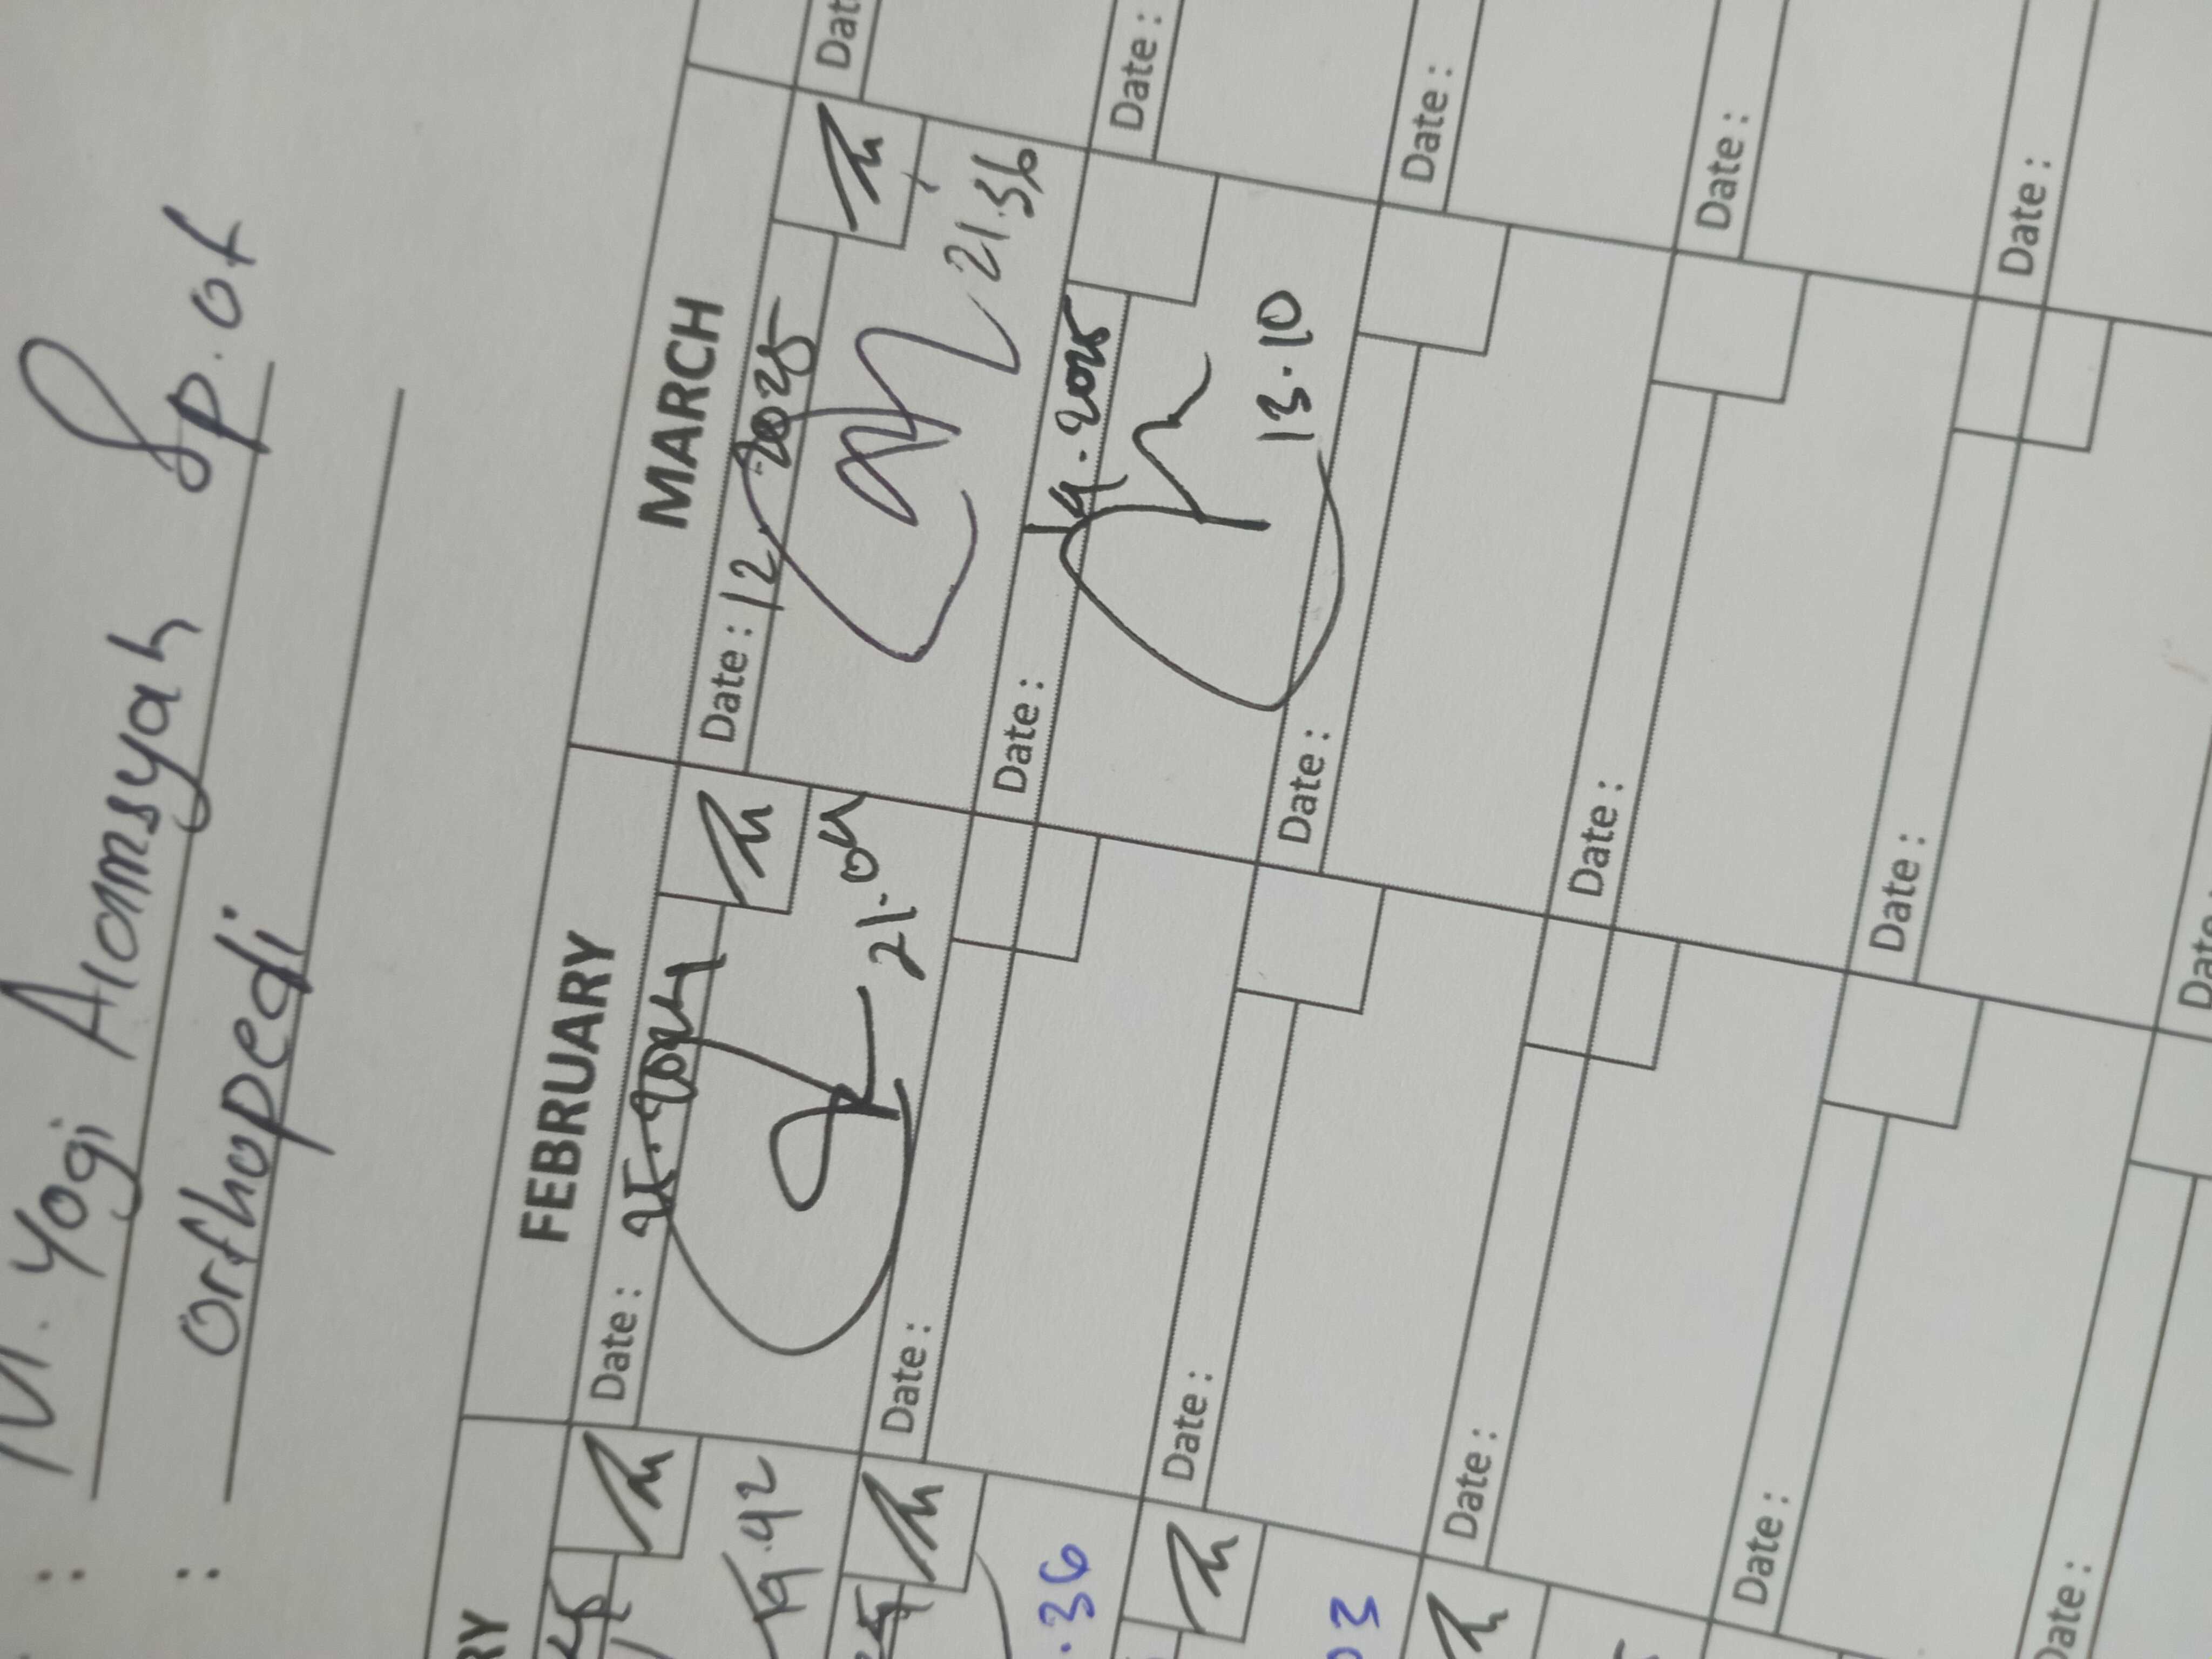 : M. Yogi Alamsyah Sp.OT
: Orthopedi
RY FEBRUARY MARCH
Date : 25. Date : 12 2025 Dat
19.42 21.04 21.36
Date : Date : 19.2025 Date :
.36 13.10
Date : Date : Date :
03
Date : Date : Date :
Date : Date : Date :
Date : Date :